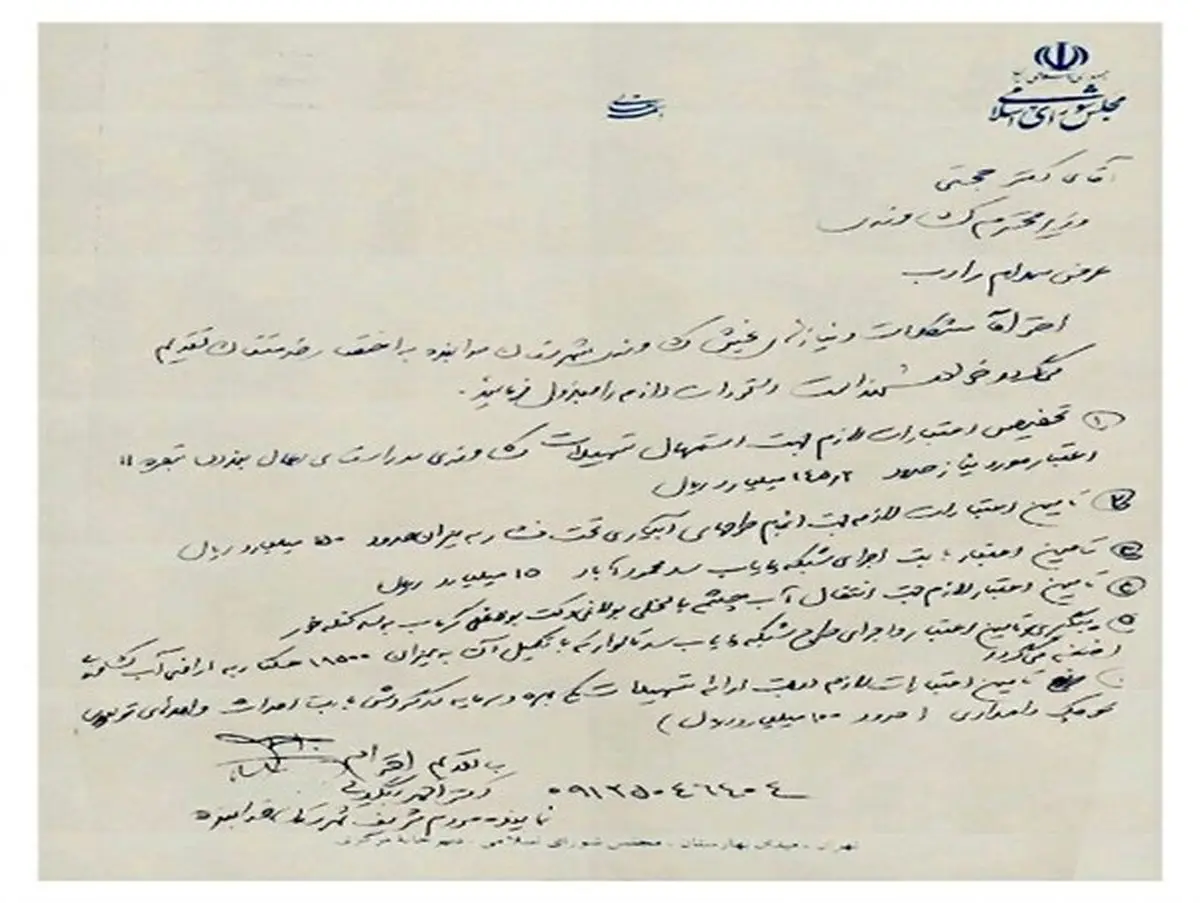 جمهوری اسلامی ایران
مجلس شورای اسلامی
بسمه تعالی
آقای دکتر حجتی
وزیر محترم کشاورزی
عرض سلام و ادب
احتراماً مشکلات و نیازهای بخش کشاورزی شهرستان خدابنده به اختصار خدمتتان تقدیم
میگردد خواهشمند است دستورات لازم را مبذول فرمایید.
۱ تخصیص اعتبارات لازم جهت استمهال تسهیلات کشاورزی در راستای اعمال تبصره
اعتبار مورد نیاز حدود ۱۴۵٫۲ میلیارد ریال
۲ تامین اعتبارات لازم جهت انجام طرحهای آبیاری تحت فشار به میزان حدود میلیارد ریال
۳ تامین اعتبار بابت اجرای شبکه پایاب سد محمودآباد ۱۵ میلیارد ریال
۴ تامین اعتبار لازم جهت انتقال آب چشمه
۵ پیگیری و تامین اعتبار و اجرای طرح شبکه پایاب سد تالوار که با تکمیل آن به میزان ۱۸۵۰۰ هکتار به اراضی آب کشاورزی
اضافه می‌گردد
تامین اعتبارات لازم جهت ارائه تسهیلات کم بهره و سرمایه در گردش بابت احداث واحدهای تولیدی
کوچک دامداری (حدود ۱۰۰ میلیارد ریال)
با تقدیم احترام
دکتر احمد بیگدلی
۰۹۱۲۵۰۴۶۴۰۴
نماینده مردم شریف شهرستان خدابنده
تهران - میدان بهارستان - مجلس شورای اسلامی - دبیرخانه مرکزی